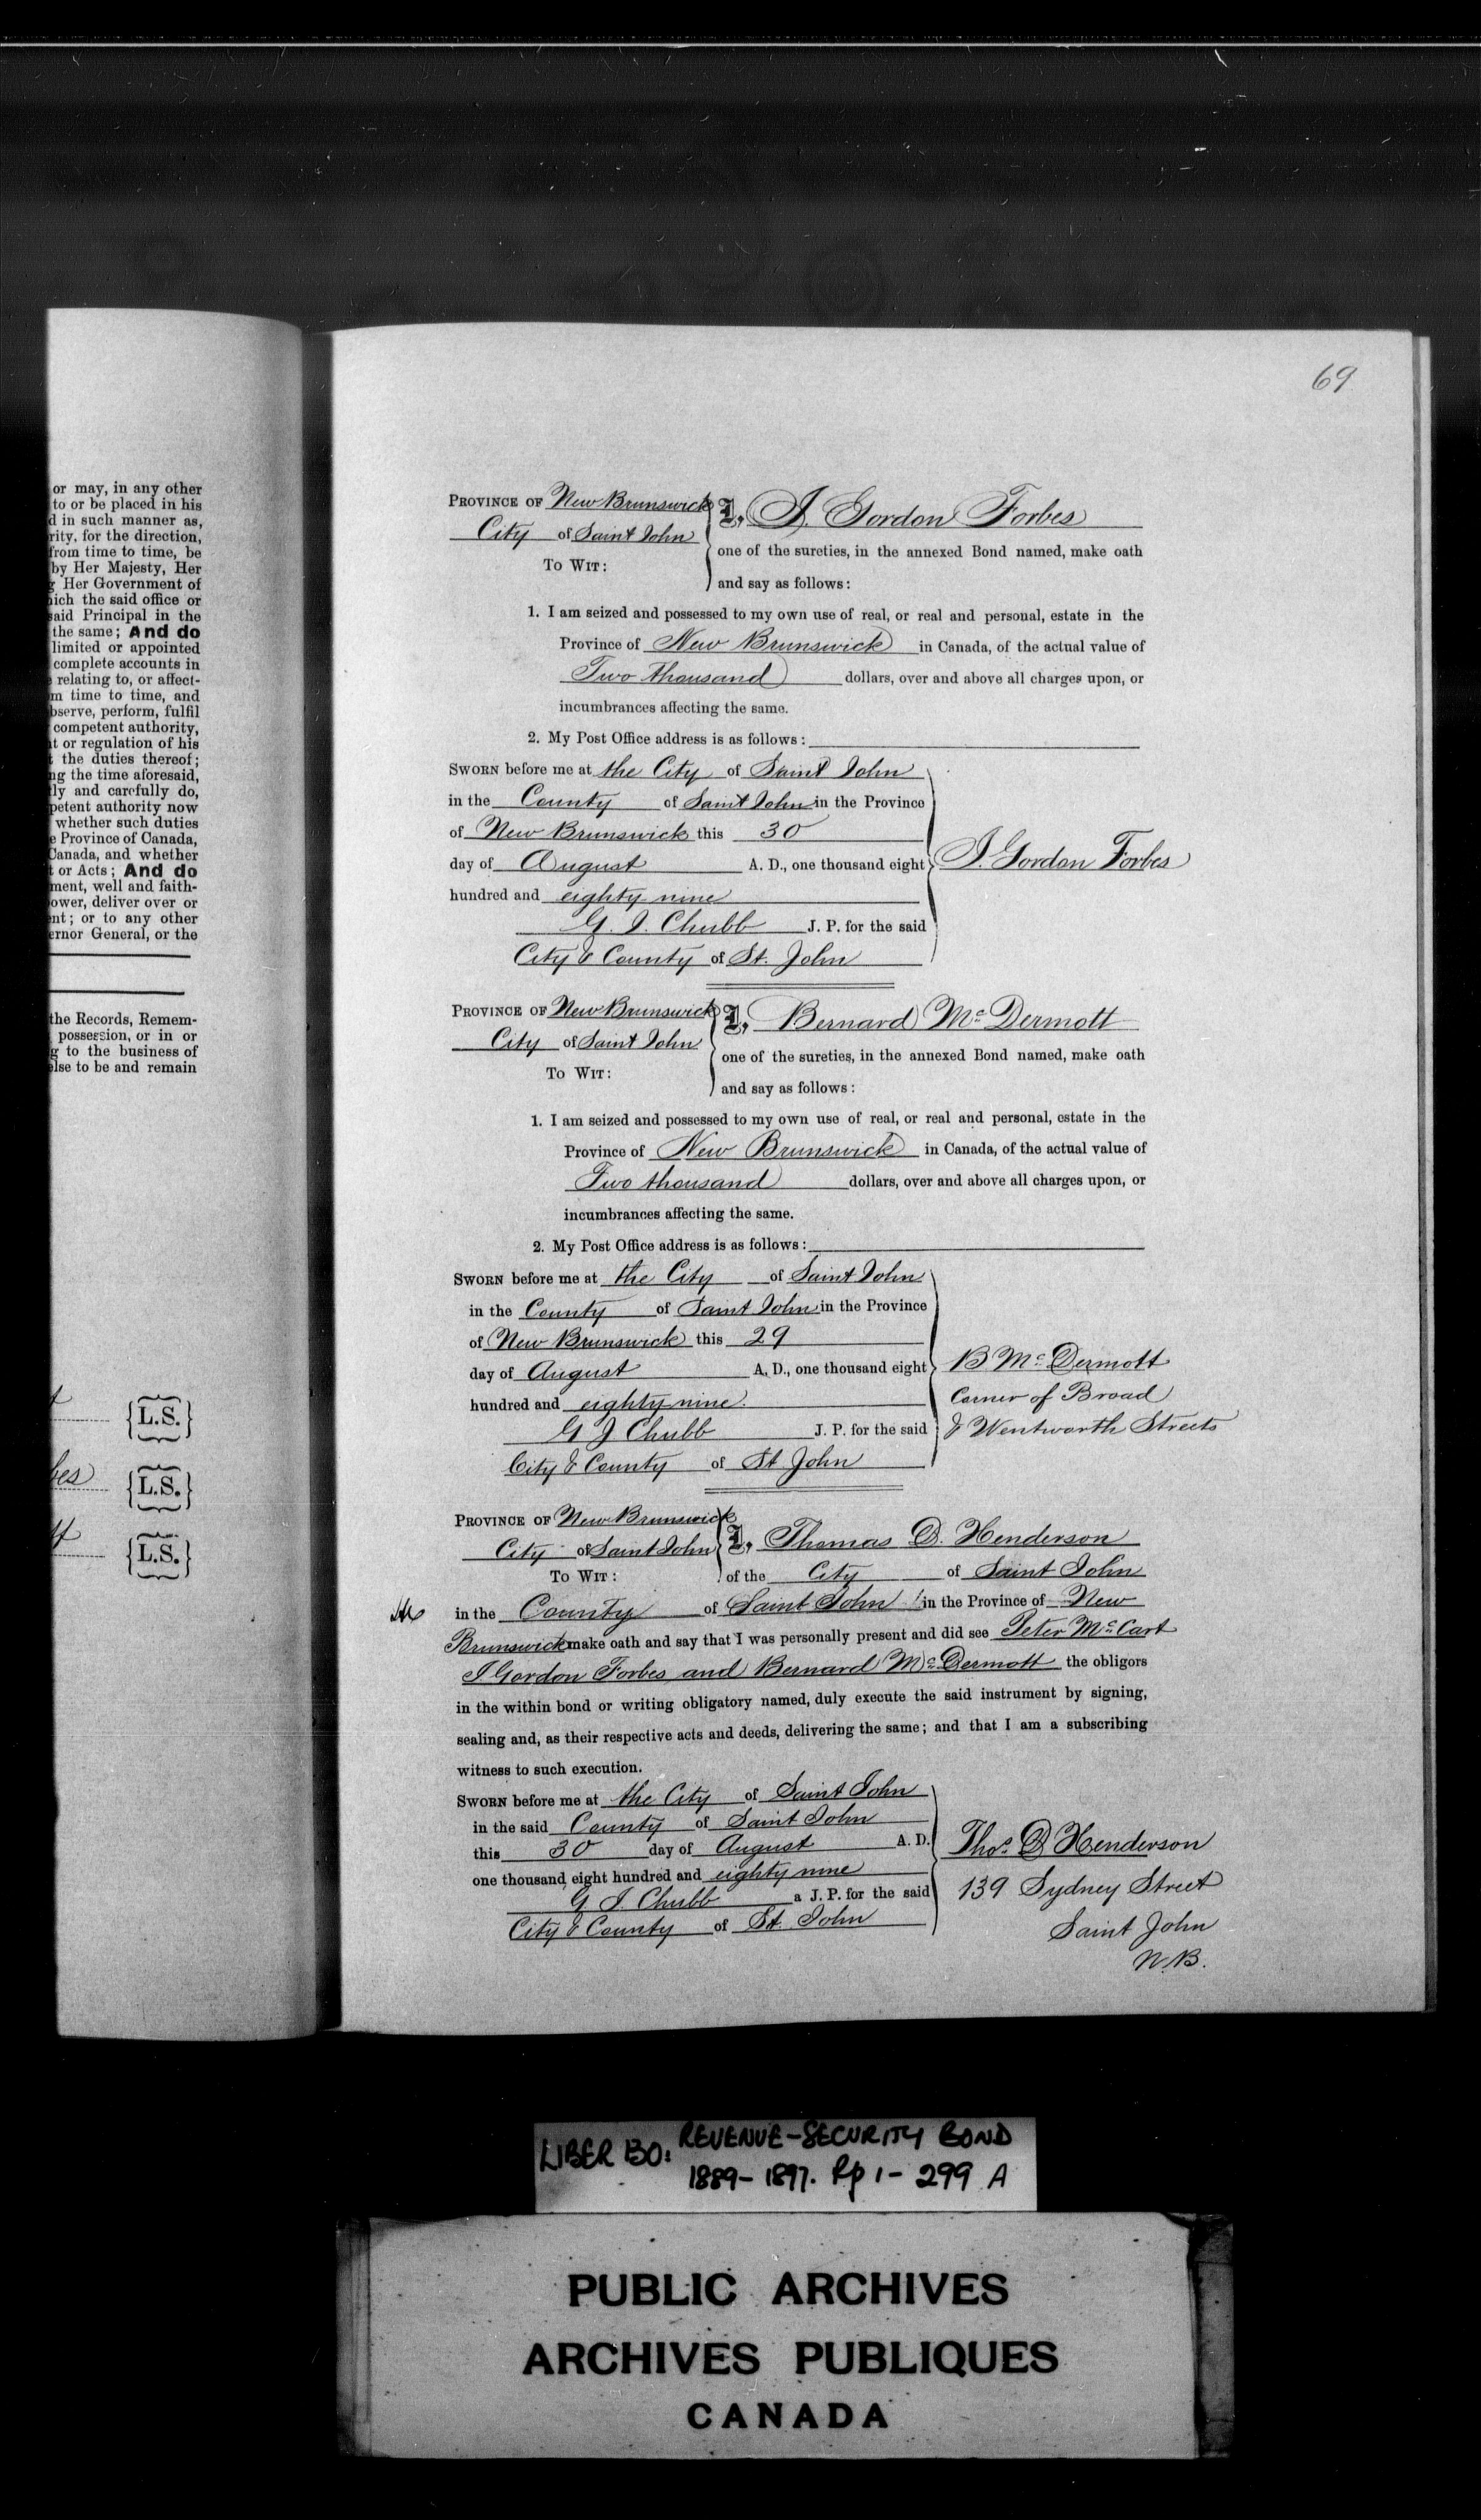 or may, in any other
to or be placed in his
d in such manner as,
rity, for the direction,
from time to time, be
by Her Majesty, Her
Her Government of
ich the said office or
said Principal in the
the same; And do
limited or appointed
complete accounts in
relating to, or affect-
m time to time, and
bserve, perform, fulfil
competent authority,
t or regulation of his
the duties thereof;
ng the time aforesaid,
ly and carefully do,
petent authority now
whether such duties
e Province of Canada,
Canada, and whether
t or Acts; And do
ment, well and faith-
ower, deliver over or
nt; or to any other
ernor General, or the
the Records, Remem-
possession, or in or
g to the business of
else to be and remain
{L.S.}
bes {L.S.}
{L.S.}
69
PROVINCE OF New Brunswick
City of Saint John
TO WIT:
I, J. Gordon Forbes
one of the sureties, in the annexed Bond named, make oath
and say as follows:
1. I am seized and possessed to my own use of real, or real and personal, estate in the
Province of New Brunswick in Canada, of the actual value of
Two thousand dollars, over and above all charges upon, or
incumbrances affecting the same.
2. My Post Office address is as follows:
SWORN before me at the City of Saint John
in the County of Saint John in the Province
of New Brunswick this 30
day of August A. D., one thousand eight
hundred and eighty nine
G. J. Chubb J. P. for the said
City & County of St. John
J. Gordon Forbes
PROVINCE OF New Brunswick
City of Saint John
TO WIT:
I, Bernard McDermott
one of the sureties, in the annexed Bond named, make oath
and say as follows:
1. I am seized and possessed to my own use of real, or real and personal, estate in the
Province of New Brunswick in Canada, of the actual value of
Two thousand dollars, over and above all charges upon, or
incumbrances affecting the same.
2. My Post Office address is as follows:
SWORN before me at the City of Saint John
in the County of Saint John in the Province
of New Brunswick this 29
day of August A. D., one thousand eight
hundred and eighty nine.
G J Chubb J. P. for the said
City & County of St John
B McDermott
Corner of Broad
& Wentworth Streets
PROVINCE OF New Brunswick
City of Saint John
TO WIT:
I, Thomas D. Henderson
of the City of Saint John
in the County of Saint John in the Province of New
Brunswick make oath and say that I was personally present and did see Peter McCart
J Gordon Forbes and Bernard McDermott the obligors
in the within bond or writing obligatory named, duly execute the said instrument by signing,
sealing and, as their respective acts and deeds, delivering the same; and that I am a subscribing
witness to such execution.
SWORN before me at the City of Saint John
in the said County of Saint John
this 30 day of August A. D.
one thousand eight hundred and eighty nine
G J. Chubb a J. P. for the said
City & County of St. John
Thos D Henderson
139 Sydney Street
Saint John
N.B.
LIBER 130: REVENUE-SECURITY BOND
1889-1897. Pp 1-299 A
PUBLIC ARCHIVES
ARCHIVES PUBLIQUES
CANADA